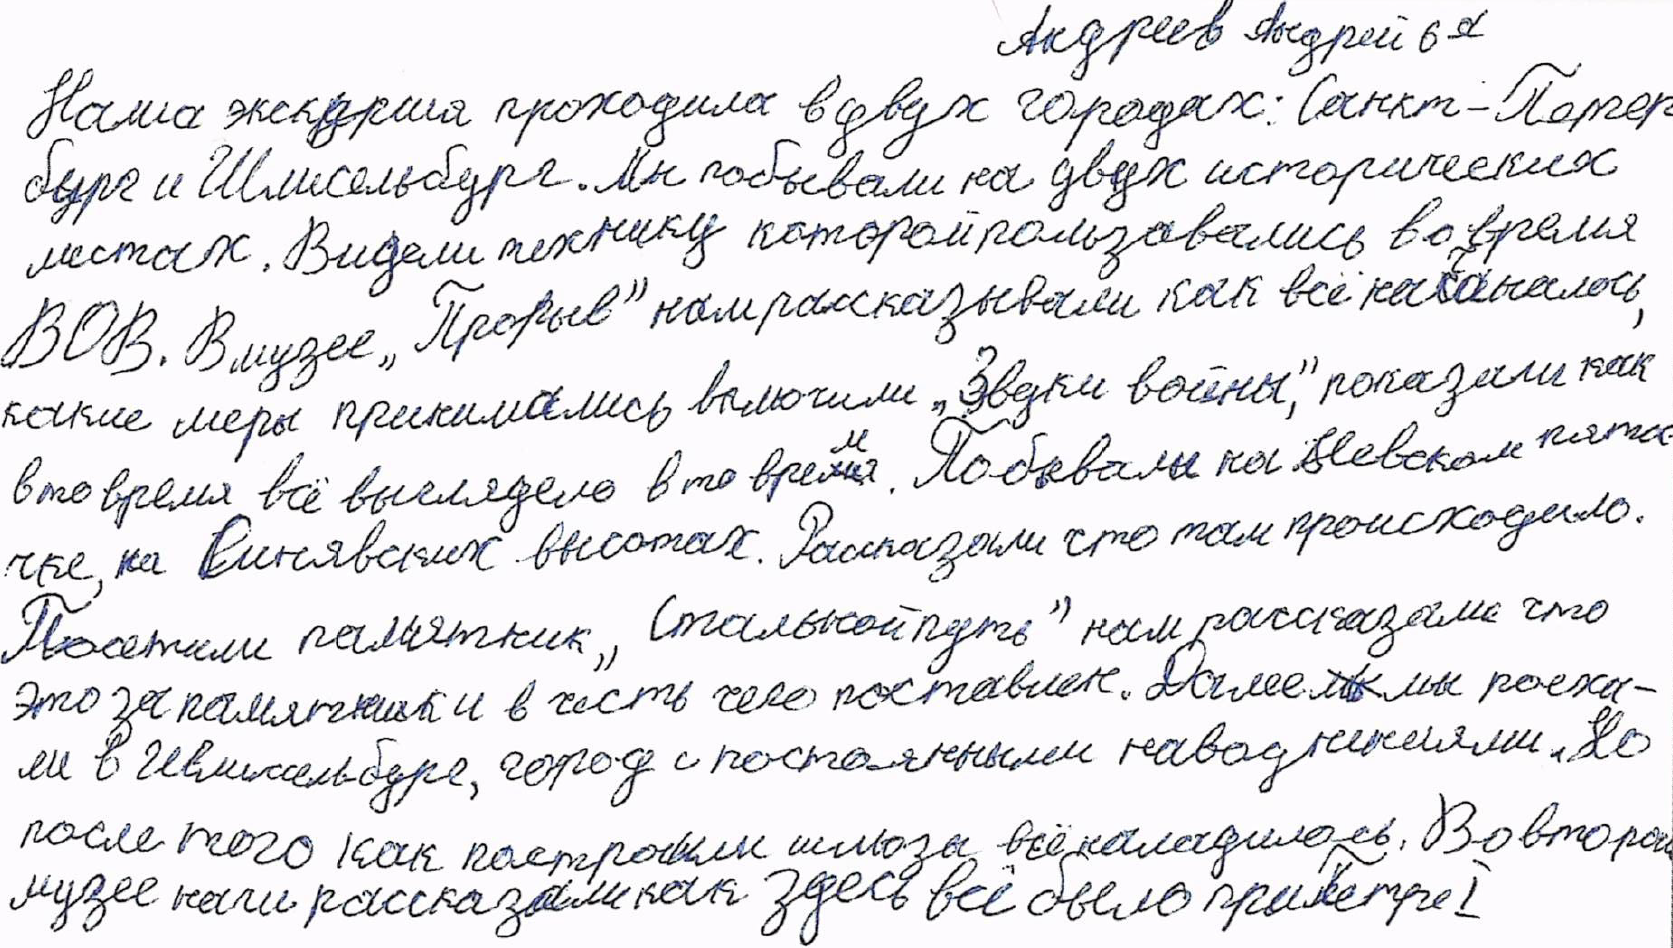 Андреев Андрей 6 а
Наша экскурсия проходила в двух городах: Санкт-Петер
бург и Шлисельбург. Мы побывали на двух исторических
местах. Видели технику которой пользовались во время
ВОВ. В музее „Прорыв” нам рассказывали как всё начаналось,
какие меры принимались включили „Звуки войны”, показали как
в то время всё выглядело в то время. Побывали на Невском пята
чке, на Синявских высотах. Расказали что там происходило.
Посетили памятник „Стальной путь” нам рассказали что
это за памятник и в честь чего поставлен. Далее мы поеха-
ли в Шлисельбург, город с постоянными наводнениями. Но
после того как построили шлюзы всё наладилось. Во второй
музее нам рассказали как здесь всё было при Петре I